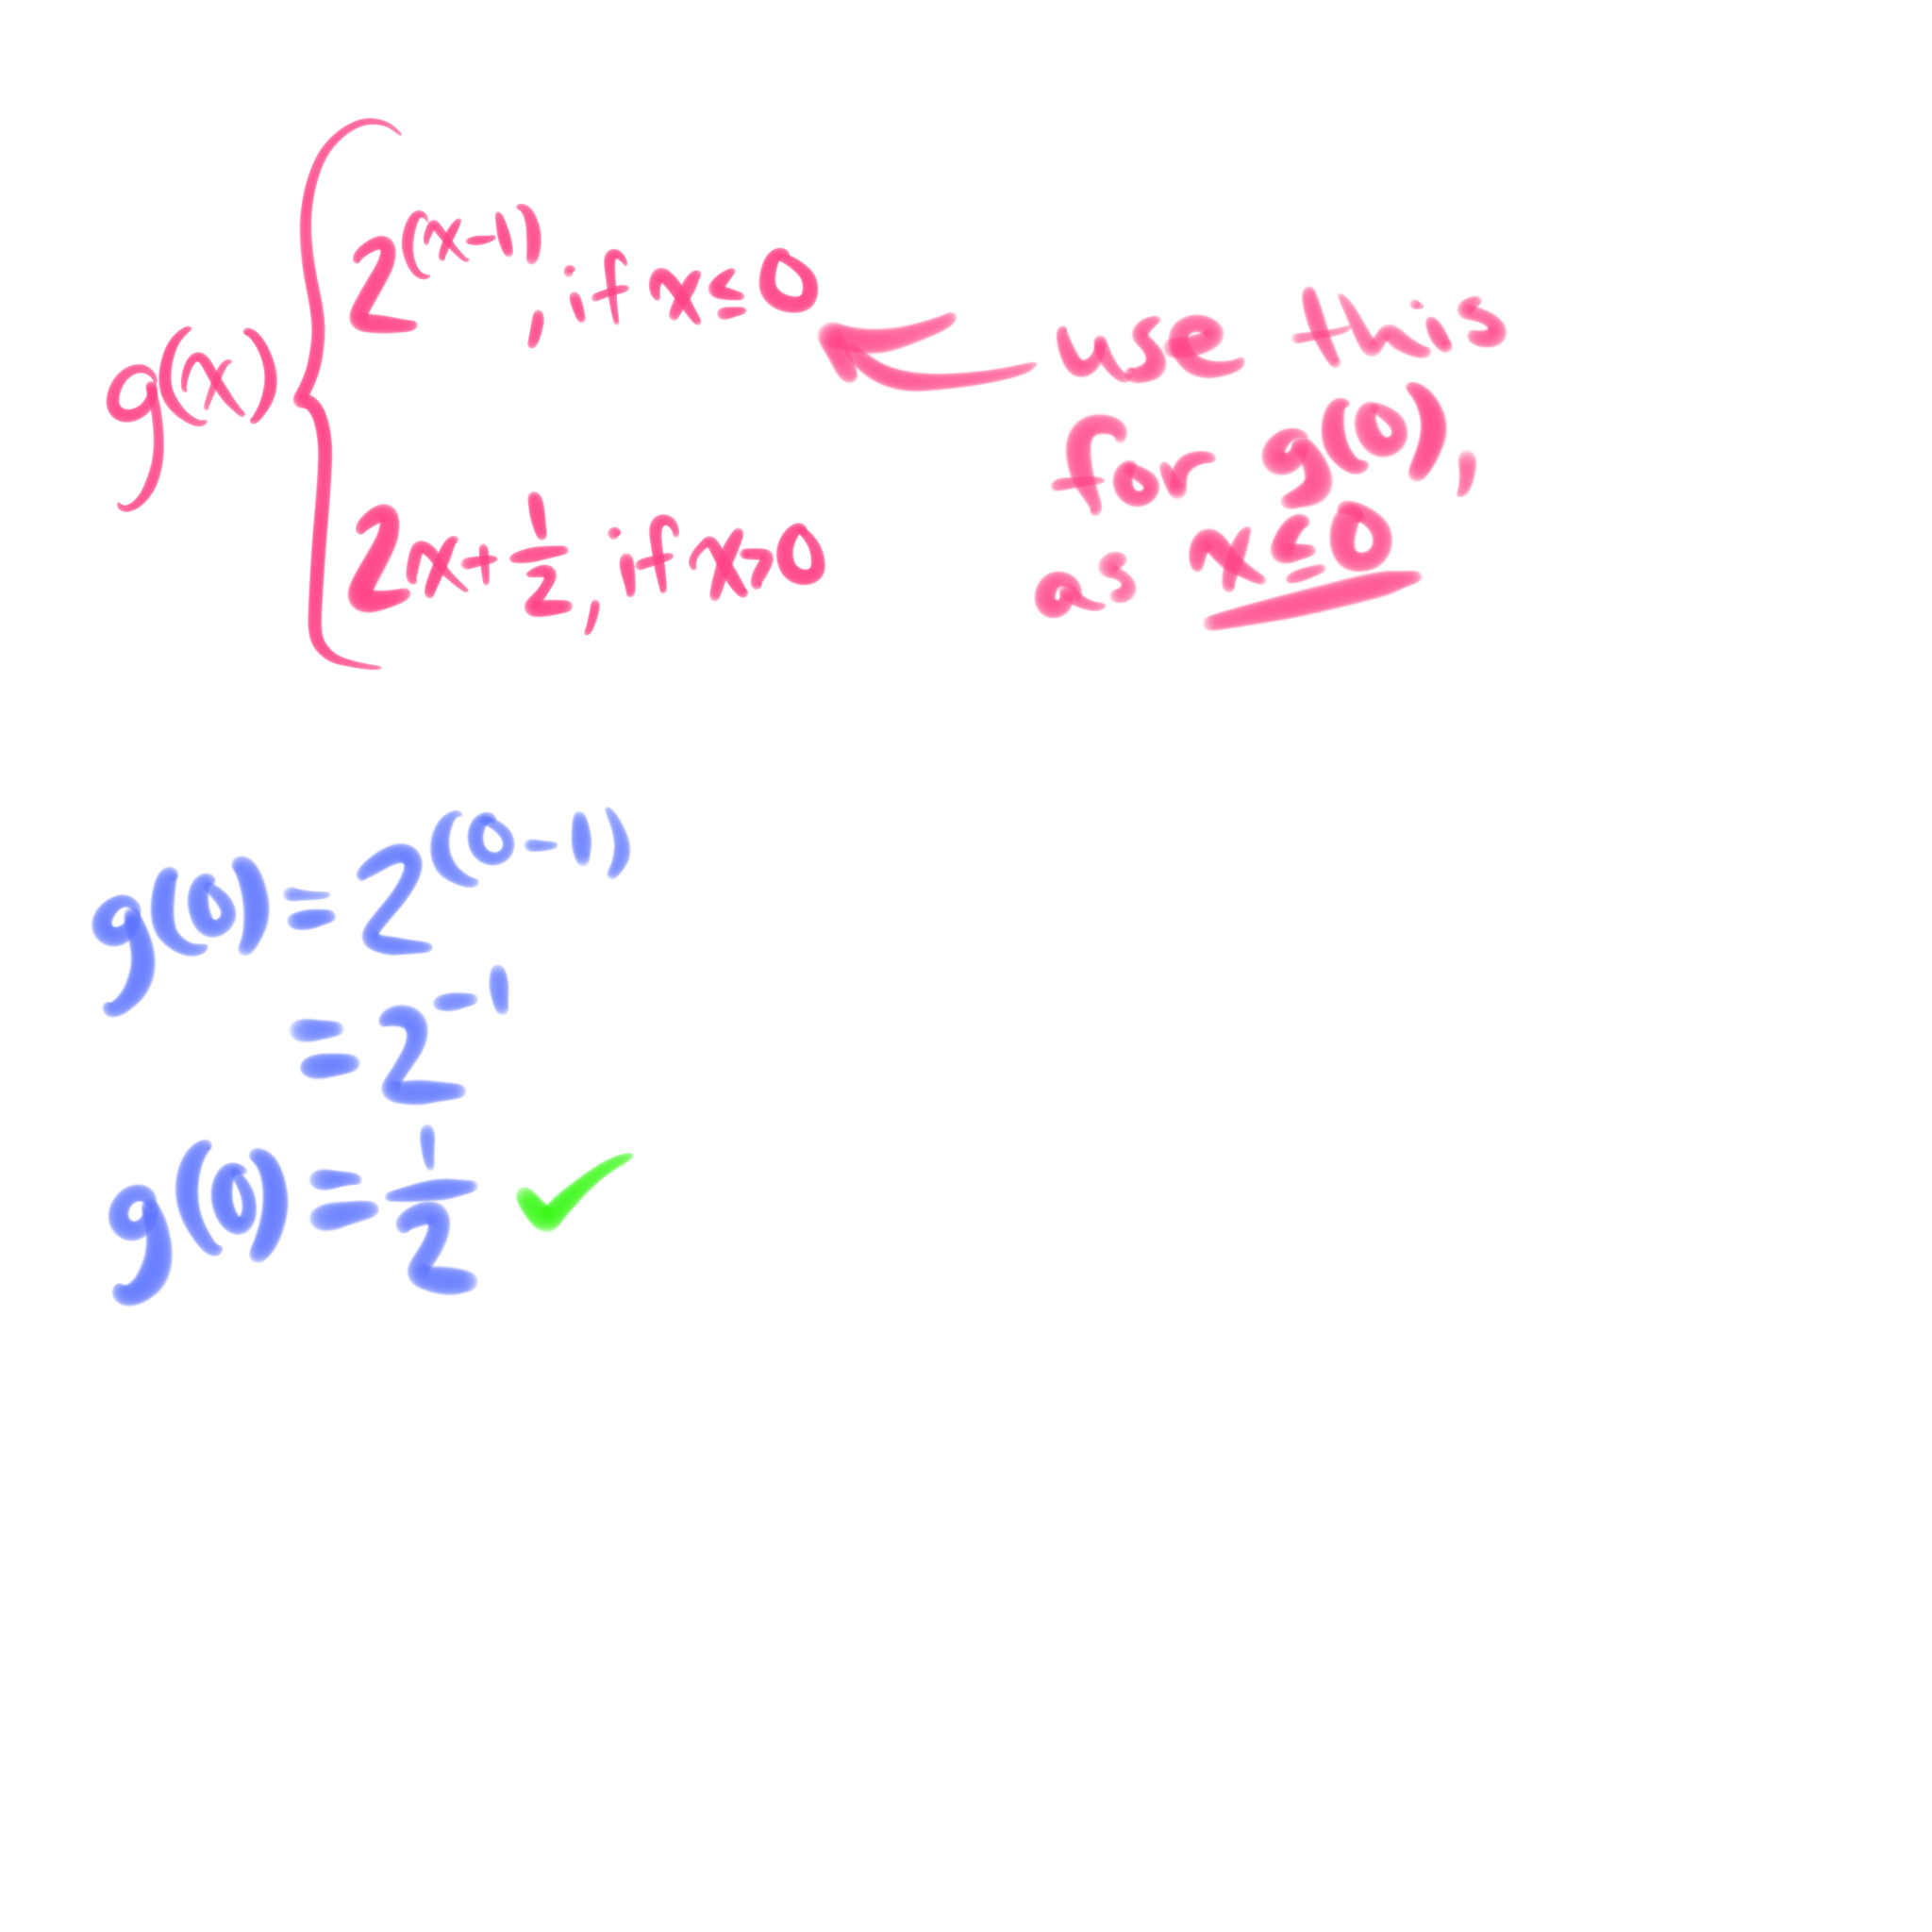 g(x) { 2^(x-1), if x≤0
2x+1/2, if x>0
use this
for g(0),
as x≤0
g(0)=2^(0-1)
=2^-1
g(0)=1/2 ✓